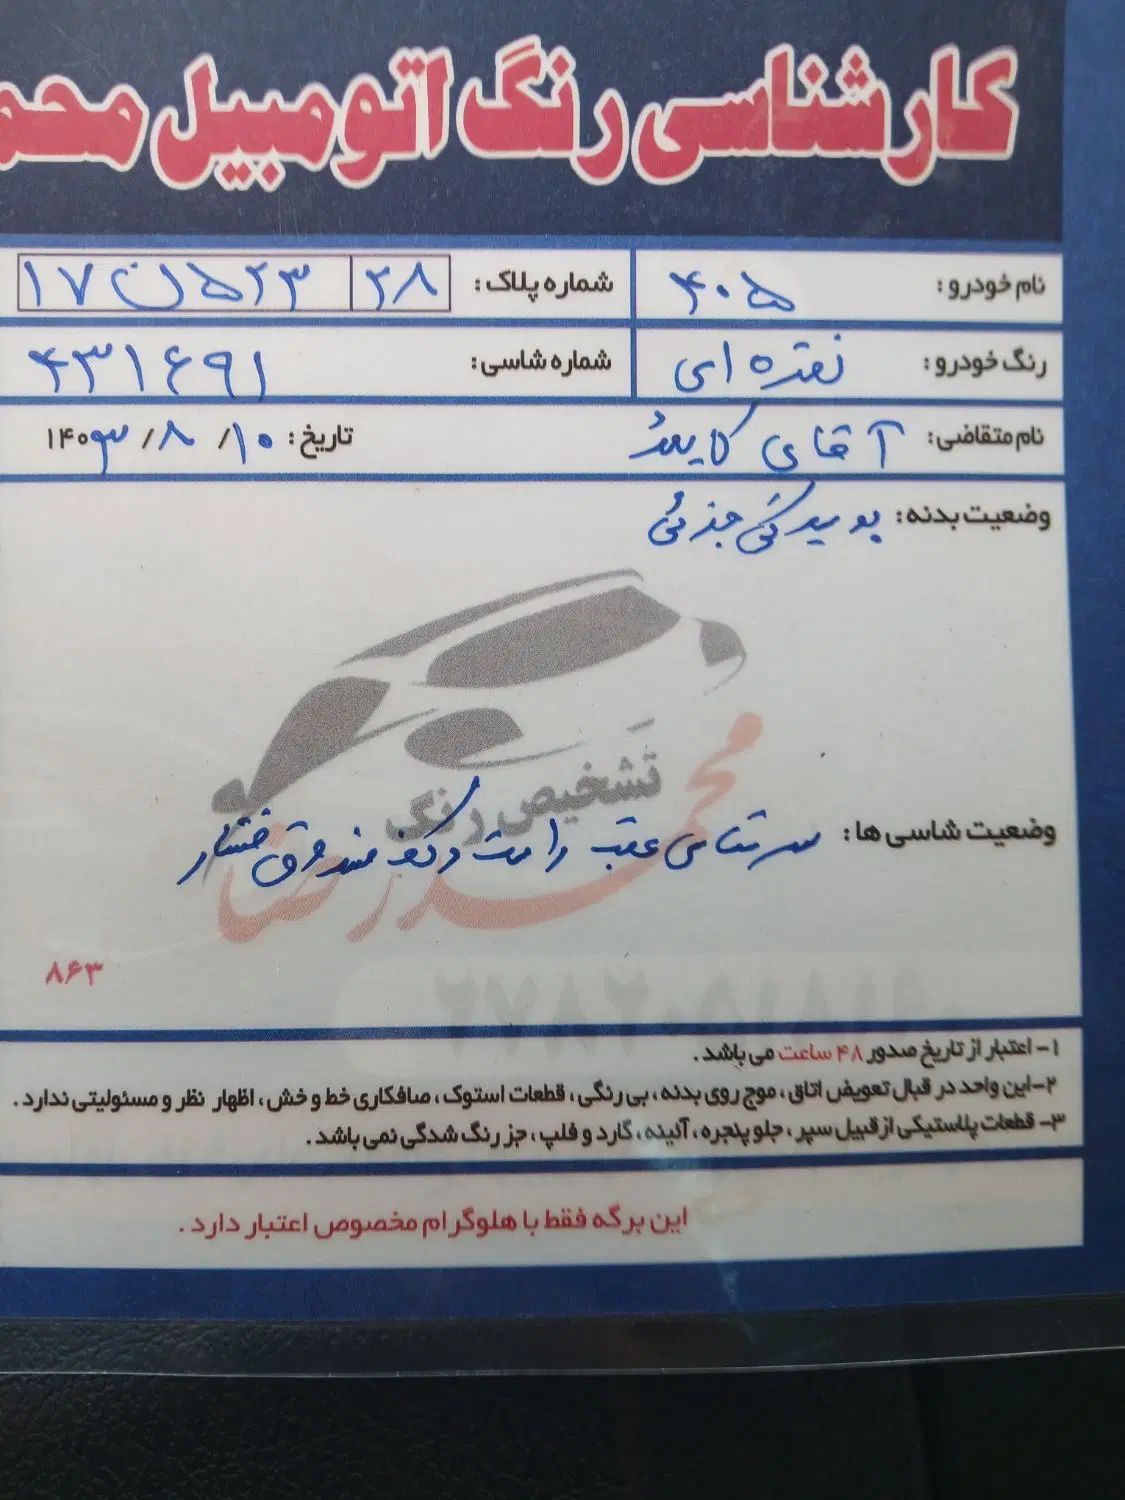 کارشناسی رنگ اتومبیل محم
نام خودرو: ۴۰۵ شماره پلاک: ۲۸ ۵۲۳ن۱۷
رنگ خودرو: نقره ای شماره شاسی: ۴۳۱۶۹۱
نام متقاضی: آقای تاریخ: ۱۰/ ۸/ ۱۴۰۳
وضعیت بدنه: پوسیدگی جزئی
تشخیص رنگ
محمدرضا
وضعیت شاسی ها: سرشاسی عقب راست و کف صندوق فشار
۸۶۳
۱- اعتبار از تاریخ صدور ۴۸ ساعت می باشد.
۲-این واحد در قبال تعویض اتاق، موج روی بدنه، بی رنگی، قطعات استوک، صافکاری خط و خش، اظهار نظر و مسئولیتی ندارد.
۳- قطعات پلاستیکی از قبیل سپر، جلو پنجره، آئینه، گارد و فلپ، جز رنگ شدگی نمی باشد.
این برگه فقط با هلوگرام مخصوص اعتبار دارد.